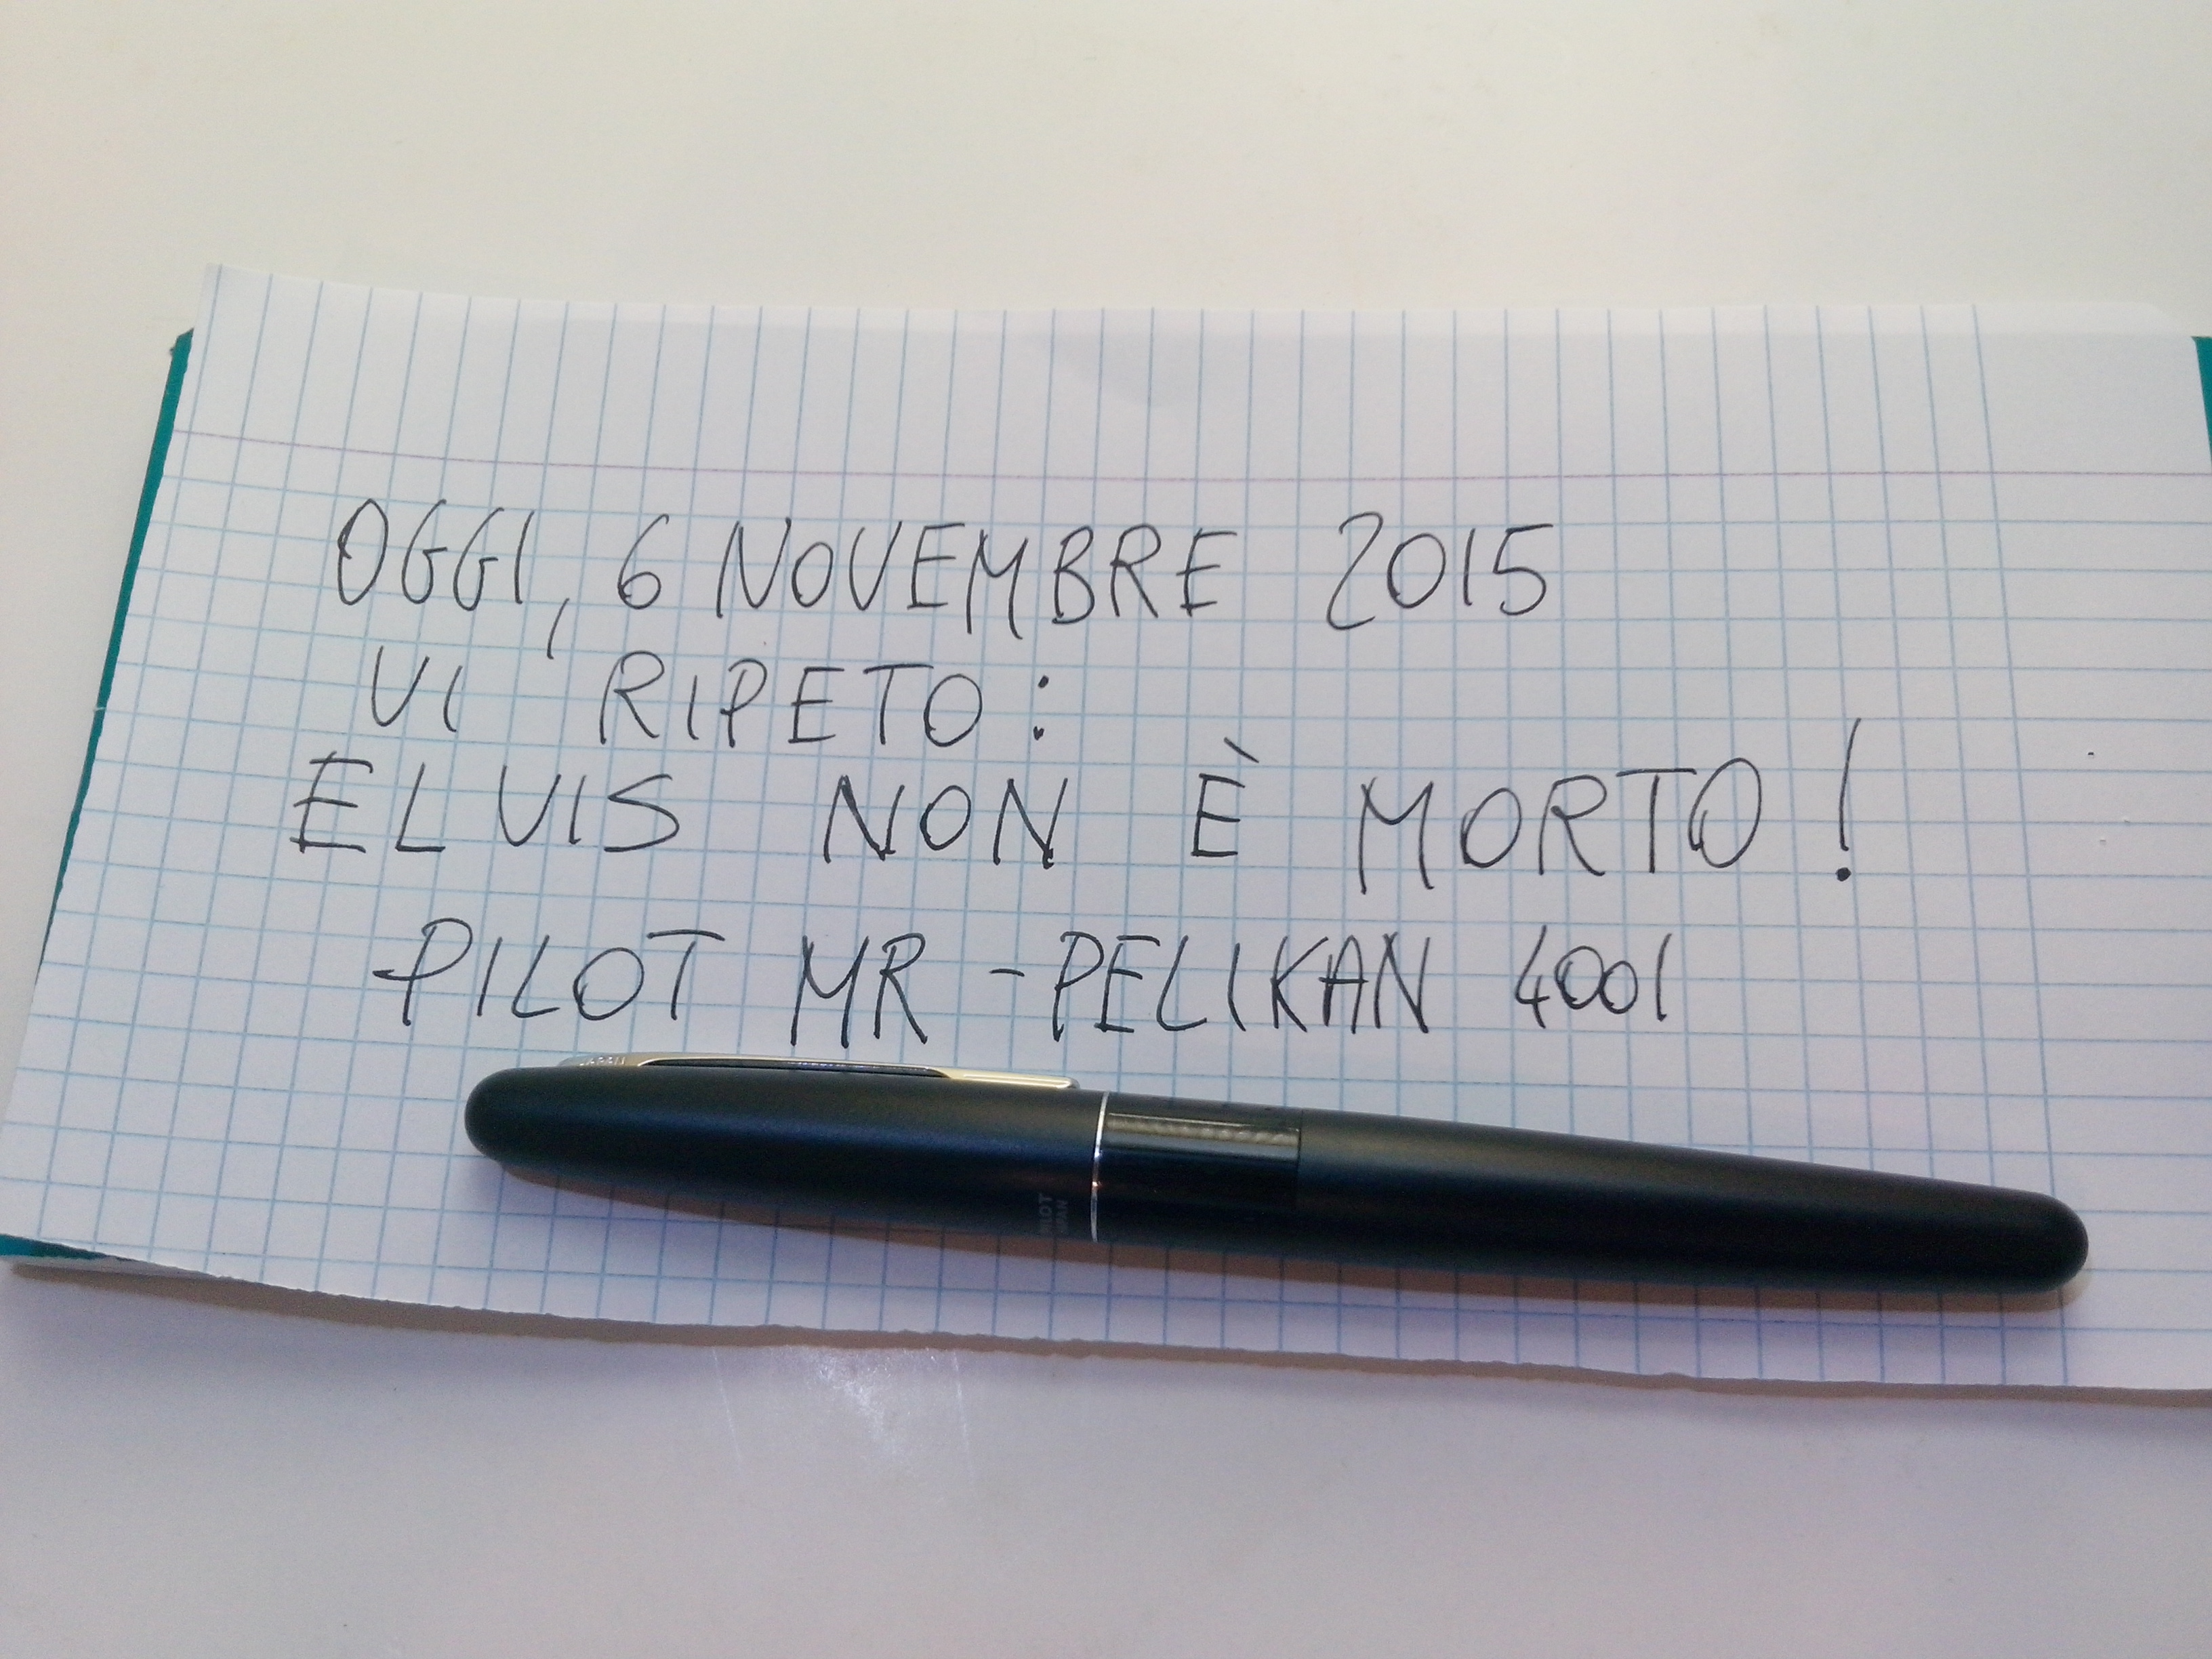 OGGI, 6 NOVEMBRE 2015
VI RIPETO:
ELVIS NON È MORTO!
PILOT MR - PELIKAN 4001
JAPAN
PILOT
JAPAN